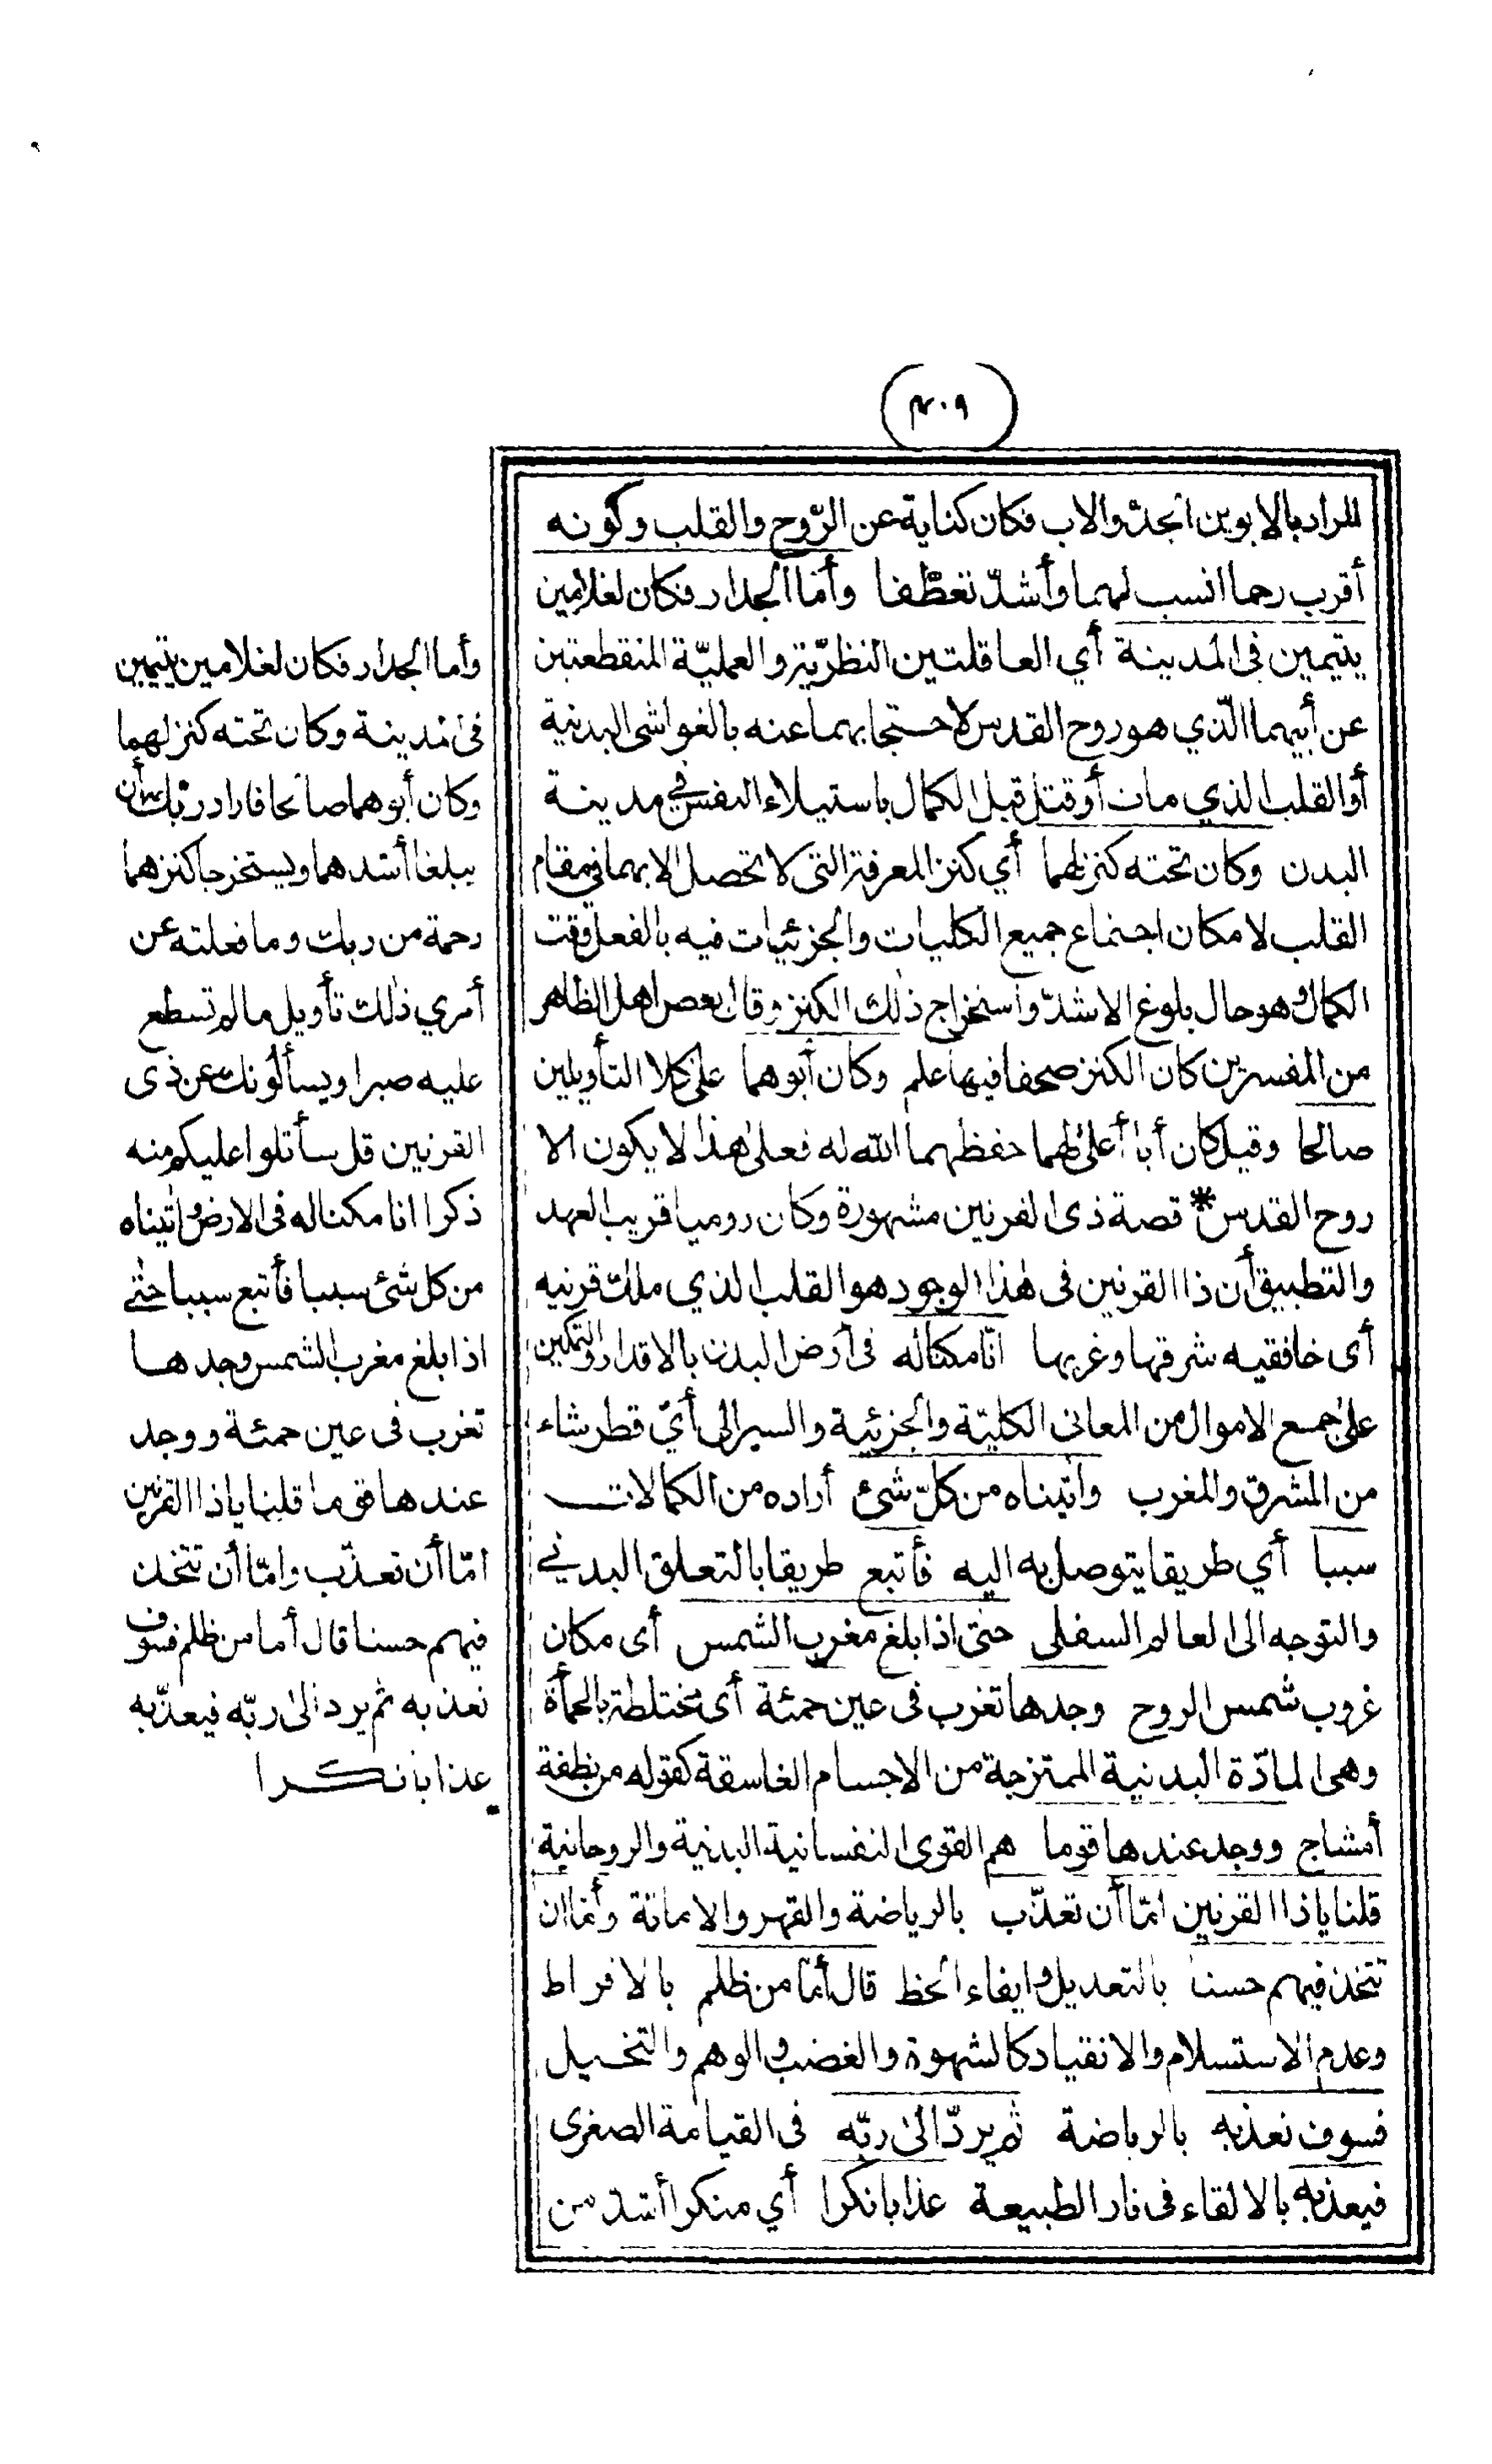 ٤٠٩
المراد بالابوين الجدّ والاب فكان كناية عن الرّوح والقلب وكونه
أقرب رحما انسب لهما وأشدّ تعطّفا وأمّا الجدار فكان لغلامين
يتيمين فى المدينة أي العاقلتين النظريّة والعمليّة المنقطعتين
عن أبيهما الّذي هو روح القدس لاحتجابهما عنه بالغواشى البدنية
أو القلب الذي مات أو قتل قبل الكمال باستيلاء النفس في مدينة
البدن وكان تحته كنز لهما أي كنز المعرفة التى لا تحصل الا بهما في مقام
القلب لامكان اجتماع جميع الكليات والجزئيات فيه بالفعل وقت
الكمال وهو حال بلوغ الاشدّ واستخراج ذلك الكنز وقال بعض اهل الظاهر
من المفسرين كان الكنز صحفا فيها علم وكان أبوهما على كلا التأويلين
صالحا وقيل كان أبا أعلى لهما حفظهما الله له فعلى هذا لا يكون الا
روح القدس * قصة ذى القرنين مشهورة وكان روميا قريب العهد
والتطبيق أن ذا القرنين فى هذا الوجود هو القلب الذي ملك قرنيه
أى خافقيه شرقها وغربها انّا مكنا له فى أرض البدن بالاقدار والتمكين
على جمع الاموال من المعانى الكليّة والجزئية والسير الى أيّ قطر شاء
من المشرق والمغرب وآتيناه من كلّ شئ أراده من الكمالات
سببا أي طريقا يتوصل به اليه فأتبع طريقا بالتعلق البدني
والتوجه الى العالم السفلى حتى اذا بلغ مغرب الشمس أى مكان
غروب شمس الروح وجدها تغرب فى عين حمئة أى مختلطة بالحمأة
وهى المادّة البدنية الممتزجة من الاجسام الغاسقة كقوله من نطفة
أمشاج ووجد عندها قوما هم القوى النفسانية البدنية والروحانية
قلنا ياذا القرنين امّا أن تعذّب بالرياضة والقهر والاماتة وأمّا ان
تتخذ فيهم حسنا بالتعديل وايفاء الحظ قال أمّا من ظلم بالافراط
وعدم الاستسلام والانقياد كالشهوة والغضب والوهم والتخيل
فسوف نعذبه بالرياضة ثم يردّ الى ربّه فى القيامة الصغرى
فيعذبه بالالقاء فى نار الطبيعة عذابا نكرا أي منكرا أشد من
وأما الجدار فكان لغلامين يتيمين
فى المدينة وكان تحته كنز لهما
وكان أبوهما صالحا فاراد ربك أن
يبلغا أشدهما ويستخرجا كنزهما
رحمة من ربك وما فعلته عن
أمري ذلك تأويل مالم تسطع
عليه صبرا ويسألونك عن ذى
القرنين قل سأتلوا عليكم منه
ذكرا انا مكنا له فى الارض وآتيناه
من كل شئ سببا فأتبع سببا حتى
اذا بلغ مغرب الشمس وجدها
تغرب فى عين حمئة ووجد
عندها قوما قلنا ياذا القرنين
امّا أن تعذّب وامّا أن تتخذ
فيهم حسنا قال أما من ظلم فسوف
نعذبه ثم يرد الى ربّه فيعذّبه
عذابا نكرا